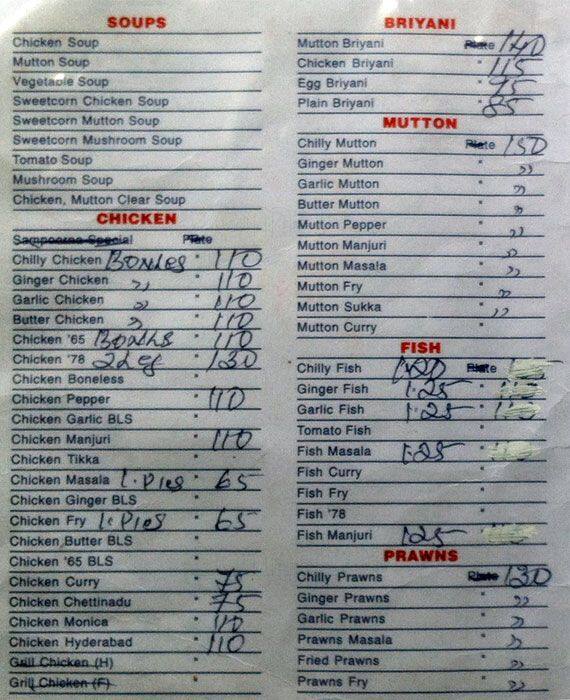 SOUPS
Chicken Soup
Mutton Soup
Vegetable Soup
Sweetcorn Chicken Soup
Sweetcorn Mutton Soup
Sweetcorn Mushroom Soup
Tomato Soup
Mushroom Soup
Chicken, Mutton Clear Soup
CHICKEN
Sampoorna Special Plate
Chilly Chicken Bonles " 110
Ginger Chicken " " 110
Garlic Chicken " " 110
Butter Chicken " " 110
Chicken '65 Bonls " 110
Chicken '78 2 Leg " 130
Chicken Boneless "
Chicken Pepper " 110
Chicken Garlic BLS "
Chicken Manjuri " 110
Chicken Tikka "
Chicken Masala 1. Pies " 65
Chicken Ginger BLS "
Chicken Fry 1. Pies " 65
Chicken Butter BLS "
Chicken '65 BLS "
Chicken Curry " 75
Chicken Chettinadu " 75
Chicken Monica " 110
Chicken Hyderabad " 110
Grill Chicken (H)
Grill Chicken (F)
BRIYANI
Mutton Briyani Plate 140
Chicken Briyani " 115
Egg Briyani " 95
Plain Briyani " 85
MUTTON
Chilly Mutton Plate 150
Ginger Mutton " "
Garlic Mutton " "
Butter Mutton " "
Mutton Pepper " "
Mutton Manjuri " "
Mutton Masala " "
Mutton Fry " "
Mutton Sukka " "
Mutton Curry "
FISH
Chilly Fish 120 Plate
Ginger Fish 1.25 "
Garlic Fish 1.25 "
Tomato Fish "
Fish Masala 1.25 "
Fish Curry "
Fish Fry "
Fish '78 "
Fish Manjuri 1.25 "
PRAWNS
Chilly Prawns Plate 130
Ginger Prawns " "
Garlic Prawns " "
Prawns Masala " "
Fried Prawns " "
Prawns Fry " "